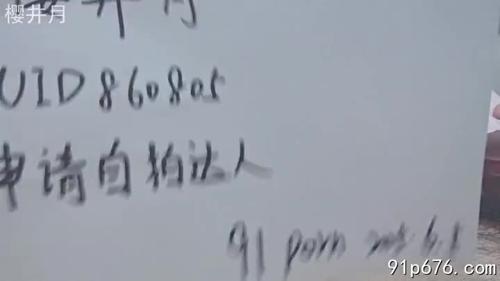 樱井月
井月
UID 860805
申请自拍达人
91 porn
91p676.com